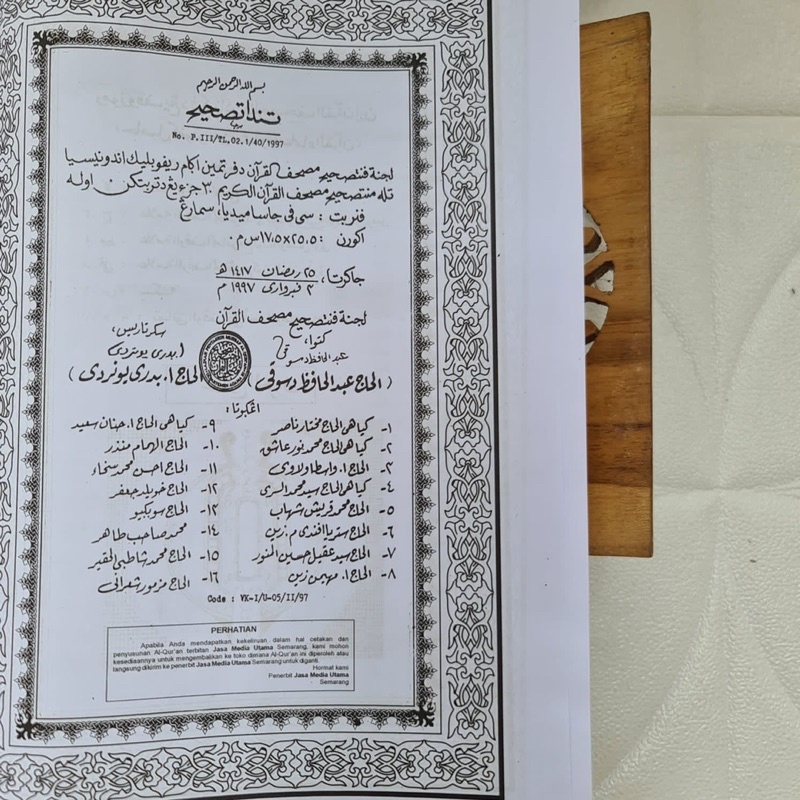 بسم الله الرحمن الرحيم
تندا تصحيح
No. P.III/TL.02.1/40/1997
لجنة فنتصحيح مصحف القرآن دفرتمين اكام ريفوبليك اندونيسيا
تله منتصحيح مصحف القرآن الكريم ٣٠ جزء يڠ دتربتكن اوله
فنربت : سى فى جاسا ميديا، سمارڠ
اكورن : ٢٥،٥×١٧،٥ س م.
جاكرتا، ٢٥ رمضان ١٤١٧ ه
٣ فبرواري ١٩٩٧ م
لجنة فنتصحيح مصحف القرآن
كتوا،
سكرتاريس،
(الحاج عبد الحافظ دسوقى)
(الحاج ا. بدرى يونردى)
اڠكوتا :
١- كياهى الحاج مختار ناصر
٢- كياهى الحاج محمد نور عاشق
٣- الحاج ا. واسطا ولاوى
٤- كياهى الحاج سيد محمد السرى
٥- الحاج محمد قريش شهاب
٦- الحاج ستريا افندى م. زين
٧- الحاج سيد عقيل حسين المنور
٨- الحاج ا. مهيمن زين
٩- كياهى الحاج ا. حنان سعيد
١٠- الحاج الهام منذر
١١- الحاج احسن محمد سخاء
١٢- الحاج خويلد جعفر
١٣- الحاج سوبكيو
١٤- محمد صاحب طاهر
١٥- الحاج محمد شاطبى الحقير
١٦- الحاج مزمور شعرانى
Code : VK-I/U-05/II/97
PERHATIAN
Apabila Anda mendapatkan kekeliruan dalam hal cetakan dan
penyusunan Al-Qur'an terbitan Jasa Media Utama Semarang, kami mohon
kesediaannya untuk mengembalikan ke toko dimana Al-Qur'an ini diperoleh atau
langsung dikirim ke penerbit Jasa Media Utama Semarang untuk diganti.
Hormat kami
Penerbit Jasa Media Utama
Semarang